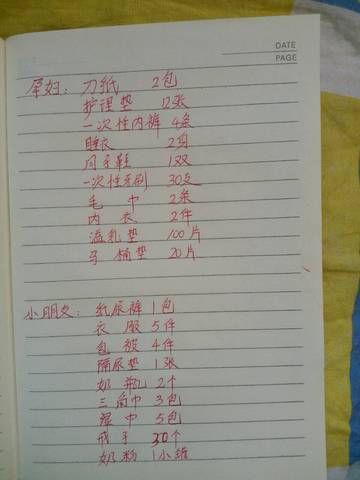 DATE
PAGE
孕妇：刀纸 2包
护理垫 12张
一次性内裤 4条
睡衣 2套
月子鞋 1双
一次性牙刷 30支
毛巾 2条
内衣 2件
溢乳垫 100片
马桶垫 20片
小朋友：纸尿裤 1包
衣服 5件
包被 4件
隔尿垫 1张
奶瓶 2个
三角巾 3包
湿巾 5包
30个
奶粉 1小罐